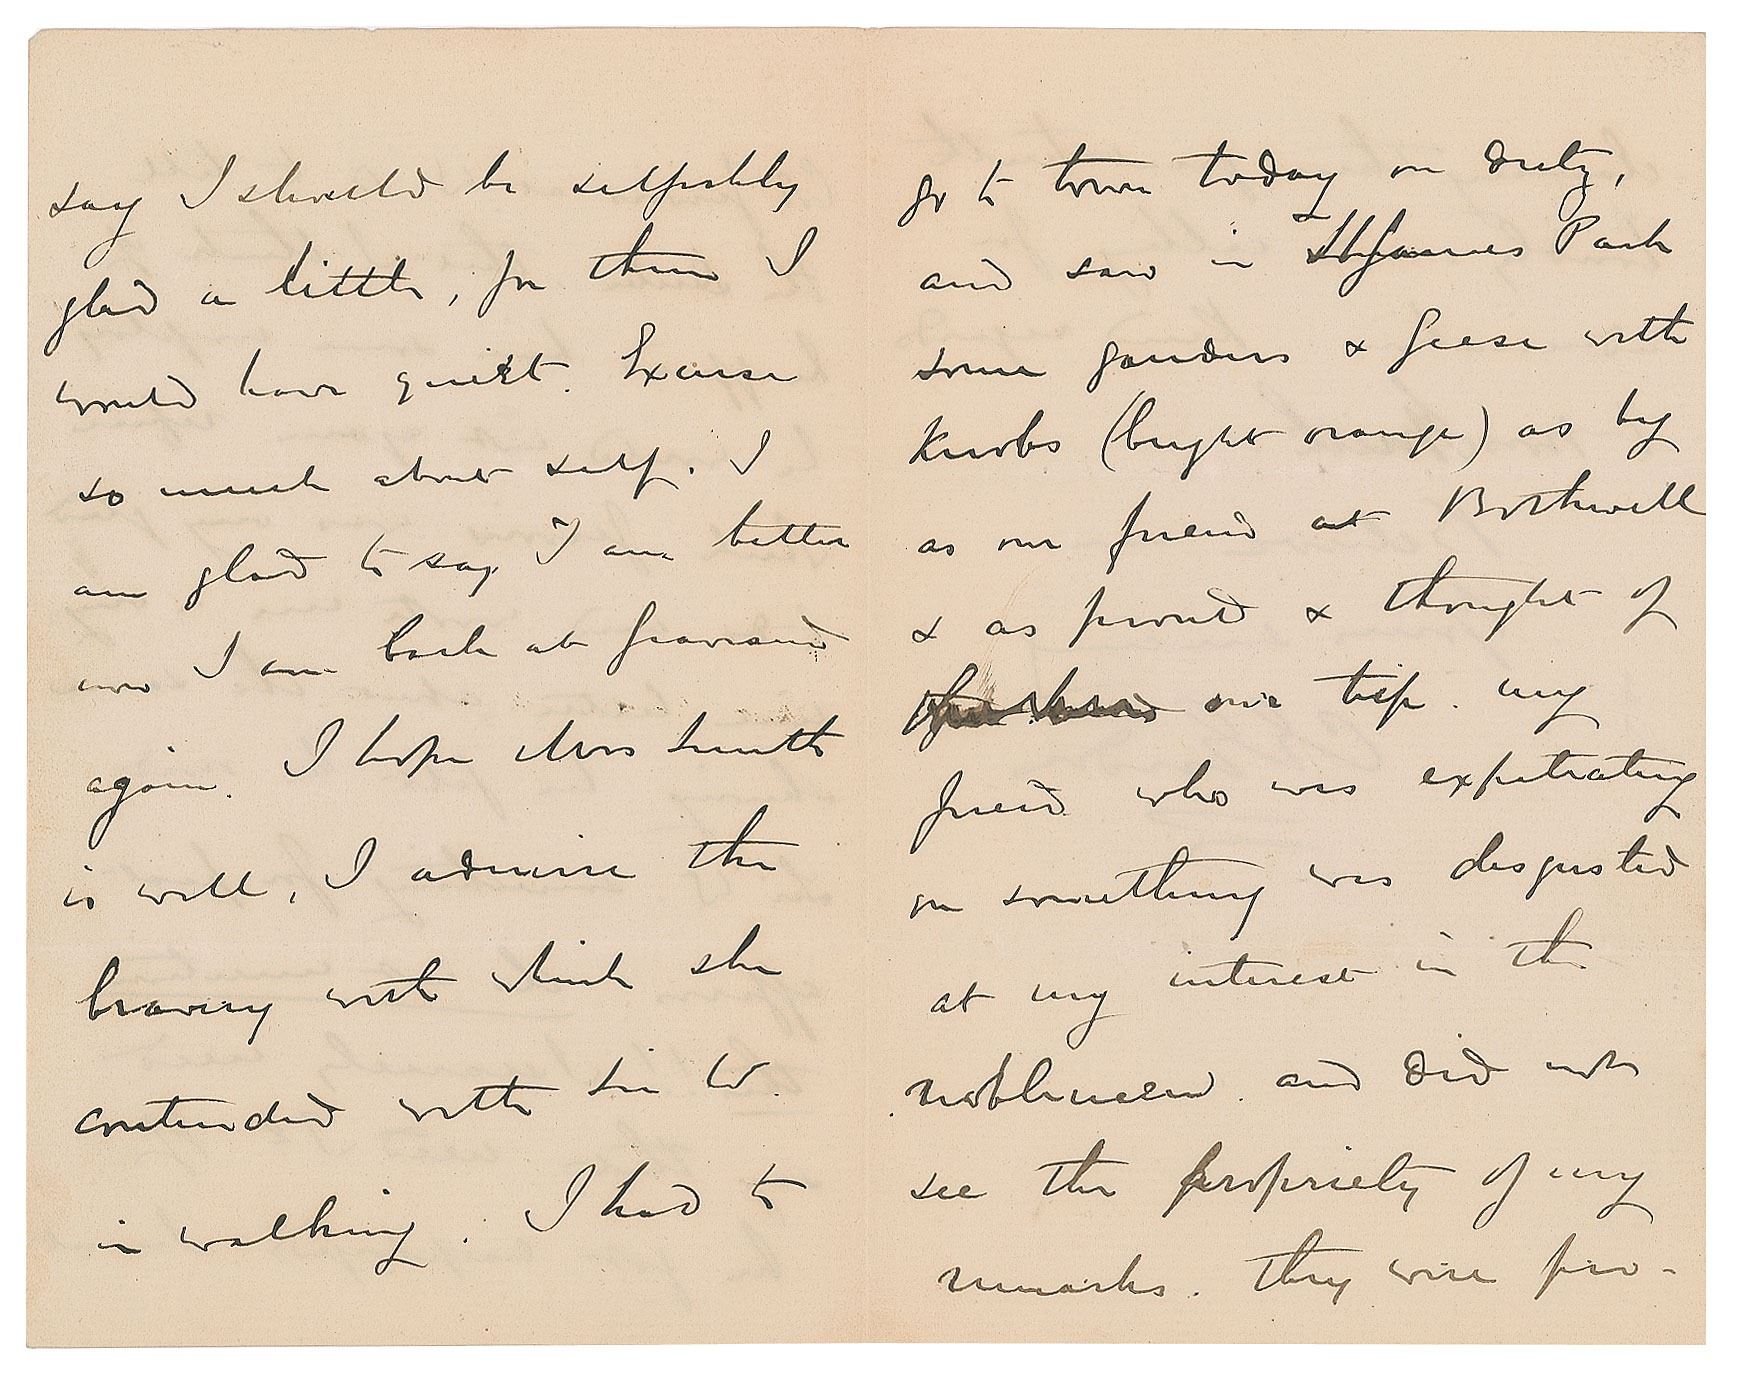 say I should be selfishly
glad a little, for then I
would have quiet. Excuse
so much about self. I
am glad to say I am better
now I am back at Gravesend
again. I hope Mrs Smith
is well, I admire the
bravery with which she
contended with Sir W.
in walking. I had to
go to town today on duty,
and saw in St James Park
some ganders & geese with
Knobs (bright orange) as big
as our friend at Bothwell
& as proud & thought of
our trip. my
friend who was expatiating
on something was disgusted
at my interest in the
nobleness and did not
see the propriety of my
remarks. they were pro-